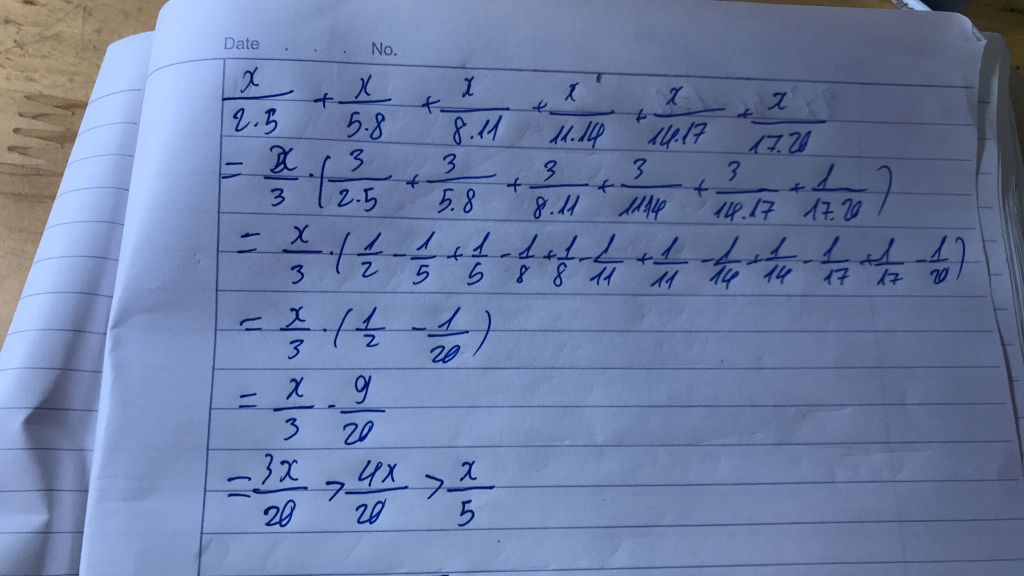 Date . . . . No.
x/2.5 + x/5.8 + x/8.11 + x/11.14 + x/14.17 + x/17.20
= x/3 . (3/2.5 + 3/5.8 + 3/8.11 + 3/11.14 + 3/14.17 + 1/17.20)
= x/3 . (1/2 - 1/5 + 1/5 - 1/8 + 1/8 - 1/11 + 1/11 - 1/14 + 1/14 - 1/17 + 1/17 - 1/20)
= x/3 . (1/2 - 1/20)
= x/3 . 9/20
= 3x/20 > 4x/20 > x/5